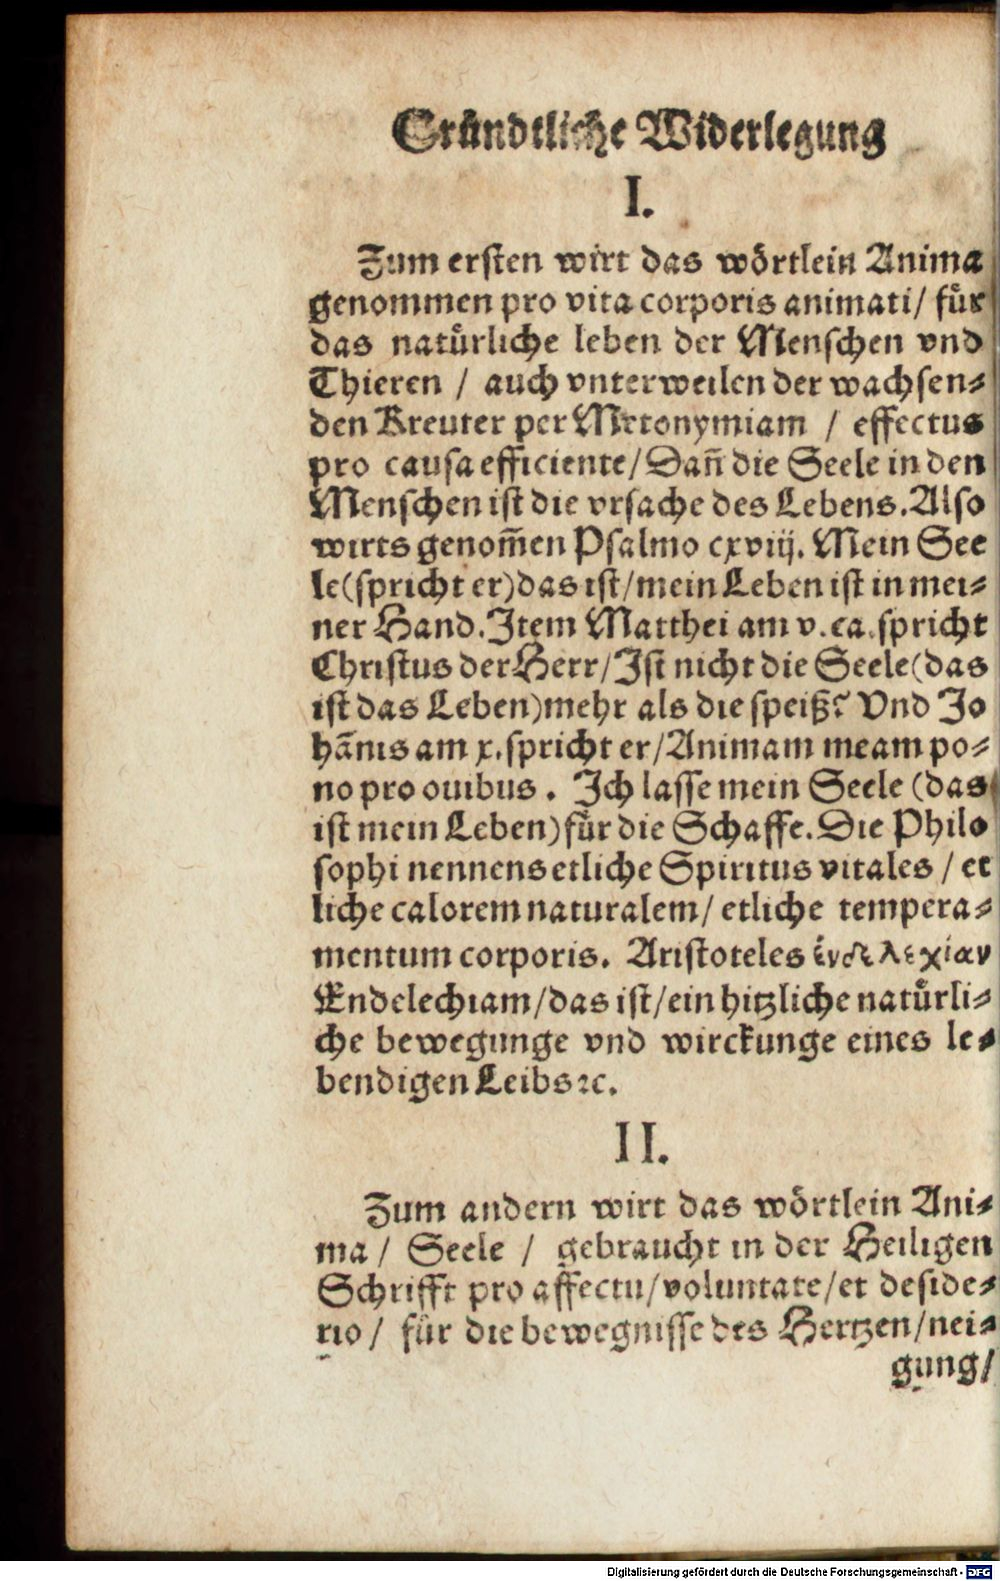 Gründtliche Widerlegung
I.
Zum ersten wirt das wörtlein Anima
genommen pro vita corporis animati/ für
das natürliche leben der Menschen vnd
Thieren / auch vnterweilen der wachsen⸗
den Kreuter per Metonymiam / effectus
pro causa efficiente/Dañ die Seele in den
Menschen ist die vrsache des Lebens.Also
wirts genom̃en Psalmo cxviij. Mein See
le(spricht er)das ist/mein Leben ist in mei⸗
ner Hand.Item Matthei am v.ca.spricht
Christus der Herr/Ist nicht die Seele(das
ist das Leben)mehr als die speiß? Vnd Jo
hãnis am x.spricht er/Animam meam po⸗
no pro ouibus . Ich lasse mein Seele (das
ist mein Leben)für die Schaffe.Die Philo
sophi nennens etliche Spiritus vitales / et
liche calorem naturalem/ etliche tempera⸗
mentum corporis. Aristoteles ἐνδελεχίαν
Endelechiam/das ist/ein hitzliche natürli⸗
che bewegunge vnd wirckunge eines le⸗
bendigen Leibs ꝛc.
II.
Zum andern wirt das wörtlein Ani⸗
ma / Seele / gebraucht in der Heiligen
Schrifft pro affectu/voluntate/et deside⸗
rio / für die bewegnisse des Hertzen/nei⸗
gung/
Digitalisierung gefördert durch die Deutsche Forschungsgemeinschaft - DFG